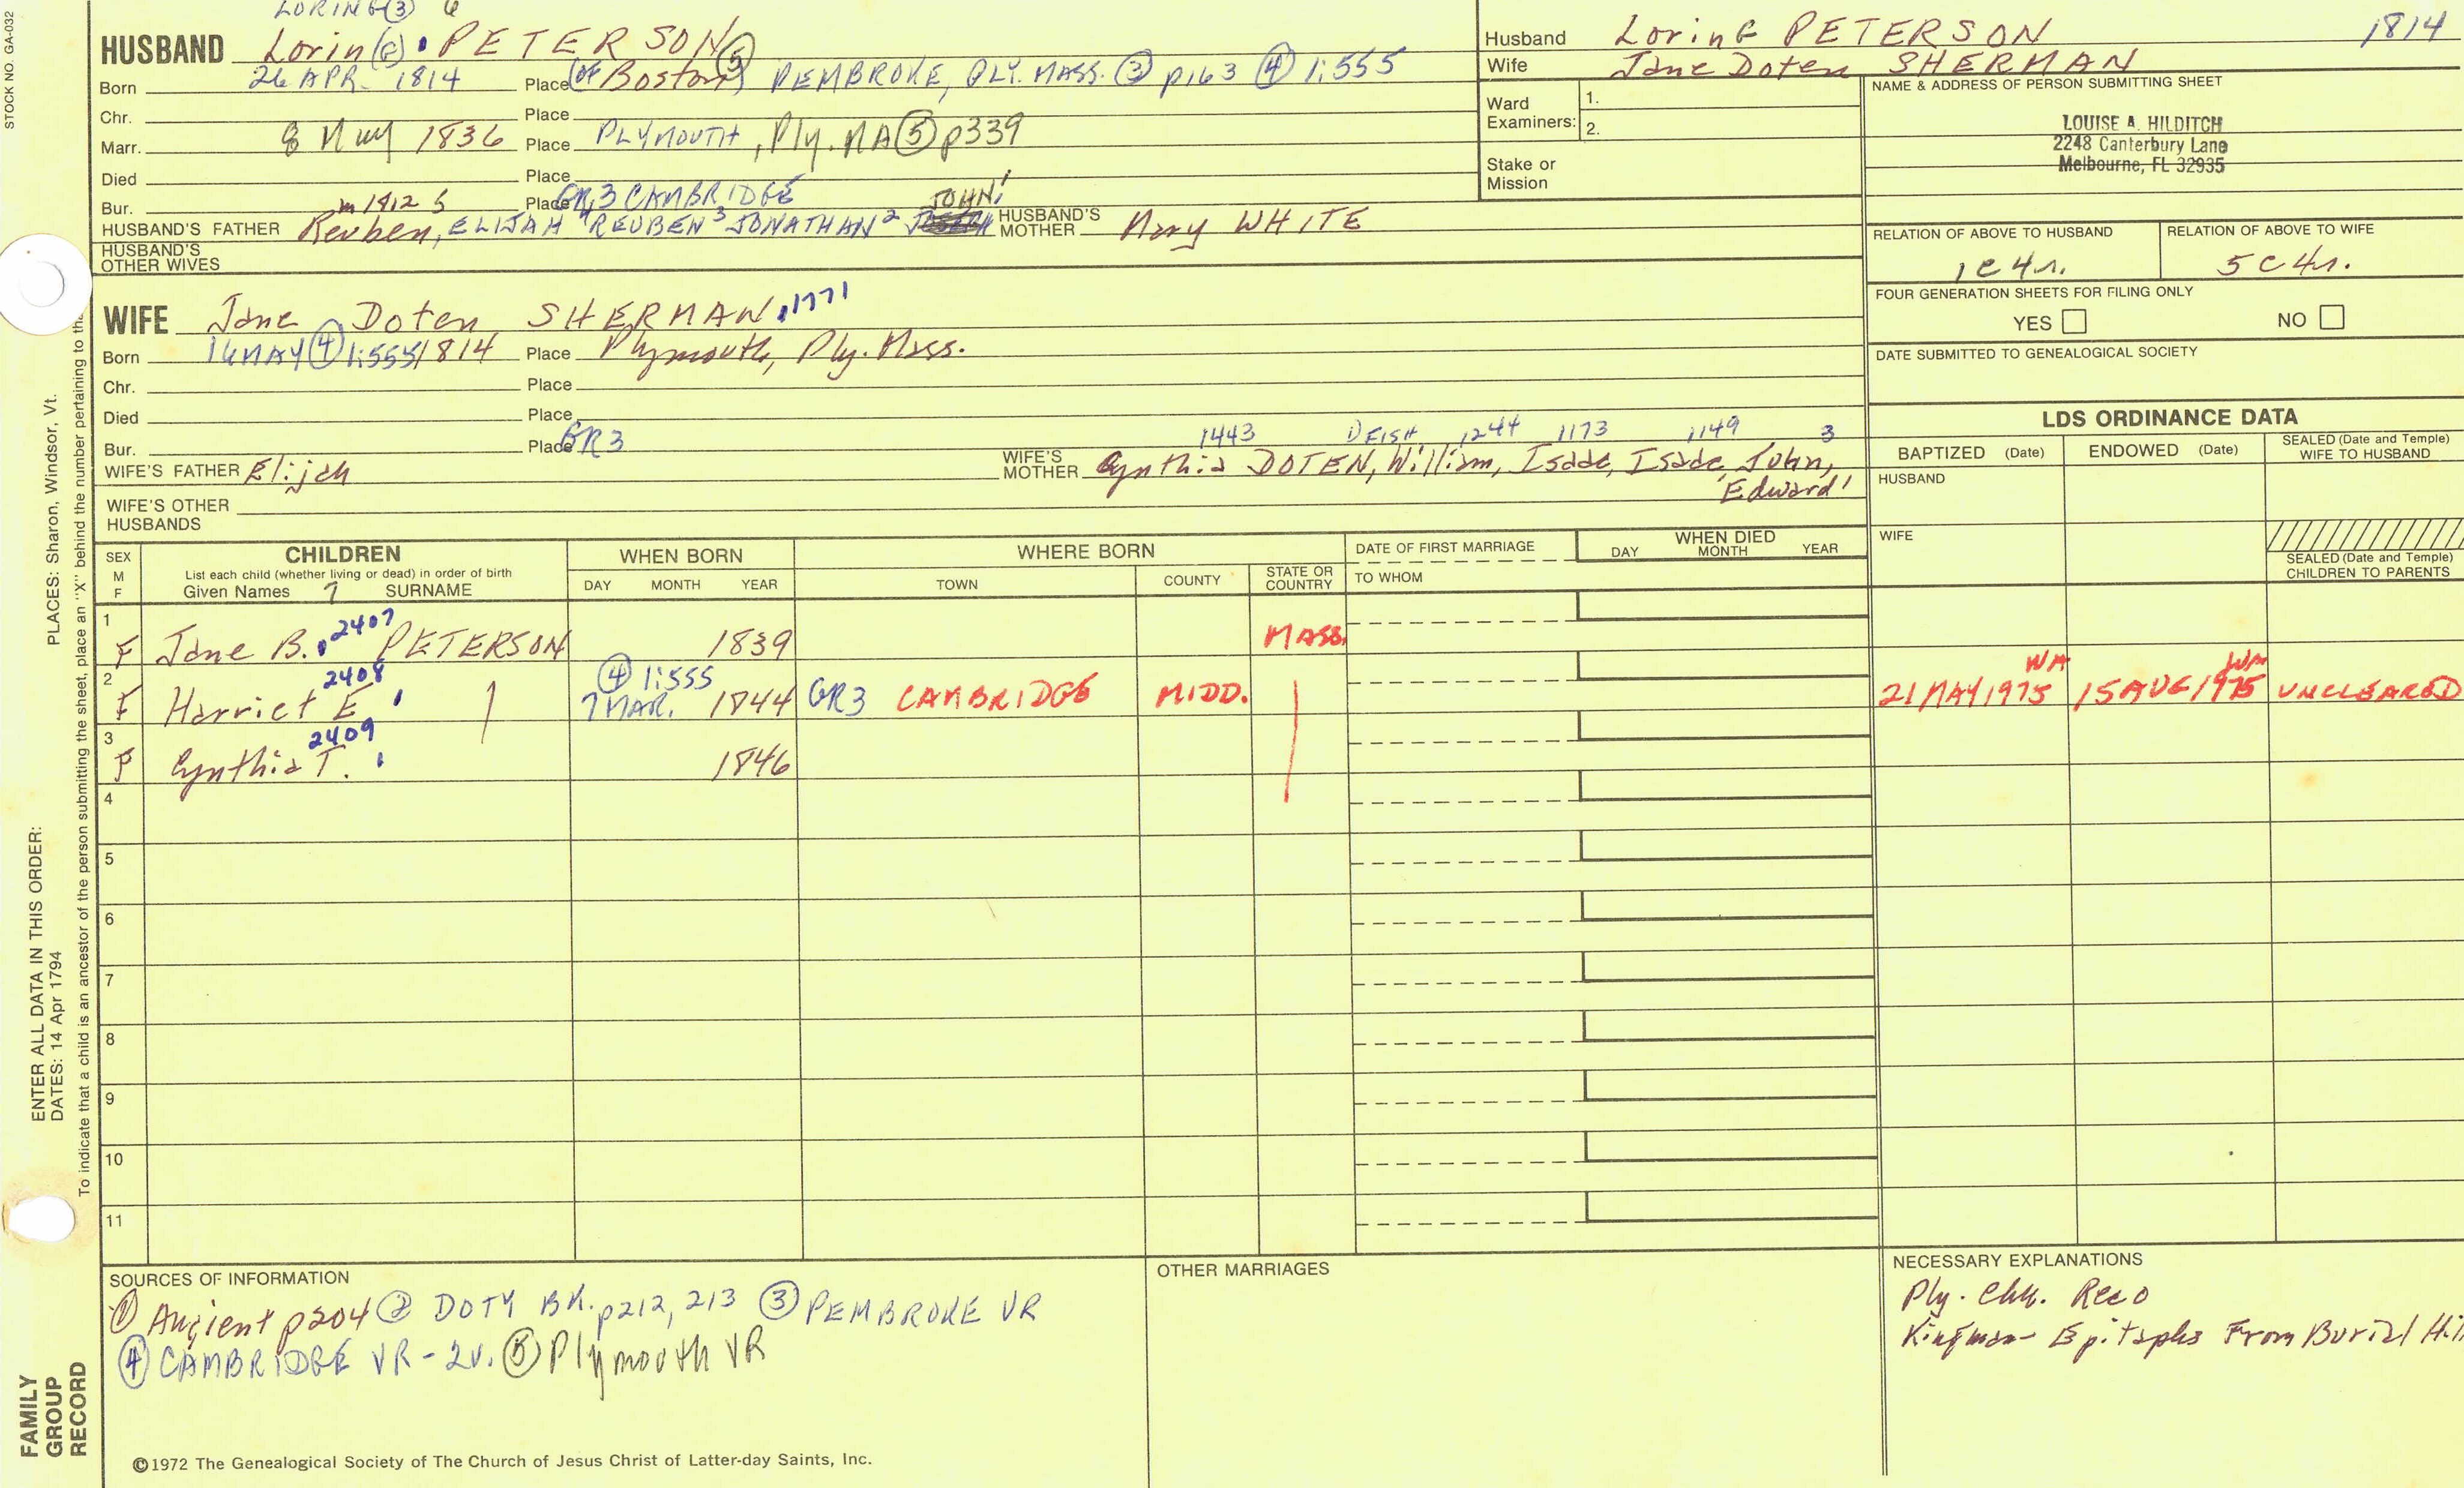 STOCK NO. GA-032
LORING ③ 6
HUSBAND Lorin(g) PETERSON ⑤
Born 26 APR. 1814 Place (of Boston) PEMBROKE, PLY. MASS. ③ p163 ④ 1:555
Chr. Place
Marr. 8 May 1836 Place PLYMOUTH, Ply. MA ⑤ p339
Died Place
Bur. Place GR3 CAMBRIDGE
JOHN'
HUSBAND'S FATHER Reuben, ELIJAH 4 REUBEN 3 JONATHAN 2 HUSBAND'S MOTHER Mary WHITE
HUSBAND'S OTHER WIVES
Husband LorinG PETERSON 1814
Wife Jane Doten SHERMAN
Ward Examiners: 1.
2.
Stake or Mission
NAME & ADDRESS OF PERSON SUBMITTING SHEET
LOUISE A. HILDITCH
2248 Canterbury Lane
Melbourne, FL 32935
RELATION OF ABOVE TO HUSBAND RELATION OF ABOVE TO WIFE
1C4r. 5C4r.
FOUR GENERATION SHEETS FOR FILING ONLY
YES NO
DATE SUBMITTED TO GENEALOGICAL SOCIETY
WIFE Jane Doten SHERMAN 1771
Born 16 MAY ④ 1:555 1814 Place Plymouth, Ply. Mass.
Chr. Place
Died Place
Bur. Place GR3
1443 1244 1173 1149 3
WIFE'S FATHER Elijah WIFE'S MOTHER Cynthia DOTEN, William, Isaac, Isaac, John,
Edward'
WIFE'S OTHER HUSBANDS
LDS ORDINANCE DATA
BAPTIZED (Date) ENDOWED (Date) SEALED (Date and Temple) WIFE TO HUSBAND
HUSBAND
WIFE
SEALED (Date and Temple) CHILDREN TO PARENTS
SEX M F CHILDREN WHEN BORN WHERE BORN DATE OF FIRST MARRIAGE WHEN DIED
List each child (whether living or dead) in order of birth
Given Names 7 SURNAME DAY MONTH YEAR TOWN COUNTY STATE OR COUNTRY TO WHOM DAY MONTH YEAR
1 F Jane B. 2407 PETERSON 1839 MASS.
2 F Harriet E 2408 ④ 1:555 7 MAR. 1844 GR3 CAMBRIDGE MIDD. 21 MAY 1975 WA 15 AUG 1975 WA UNCLEARED
3 F Cynthia T. 2409 1846
4
5
6
7
8
9
10
11
SOURCES OF INFORMATION
① Ancient p204 ② DOTY BK. p212, 213 ③ PEMBROKE VR
④ CAMBRIDGE VR - 2v. ⑤ Plymouth VR
OTHER MARRIAGES
NECESSARY EXPLANATIONS
Ply. Chh. Reco
Kingman - Epitaphs From Burial Hil
©1972 The Genealogical Society of The Church of Jesus Christ of Latter-day Saints, Inc.
FAMILY
GROUP
RECORD
ENTER ALL DATA IN THIS ORDER:
DATES: 14 Apr 1794
PLACES: Sharon, Windsor, Vt.
To indicate that a child is an ancestor of the person submitting the sheet, place an "X" behind the number pertaining to th